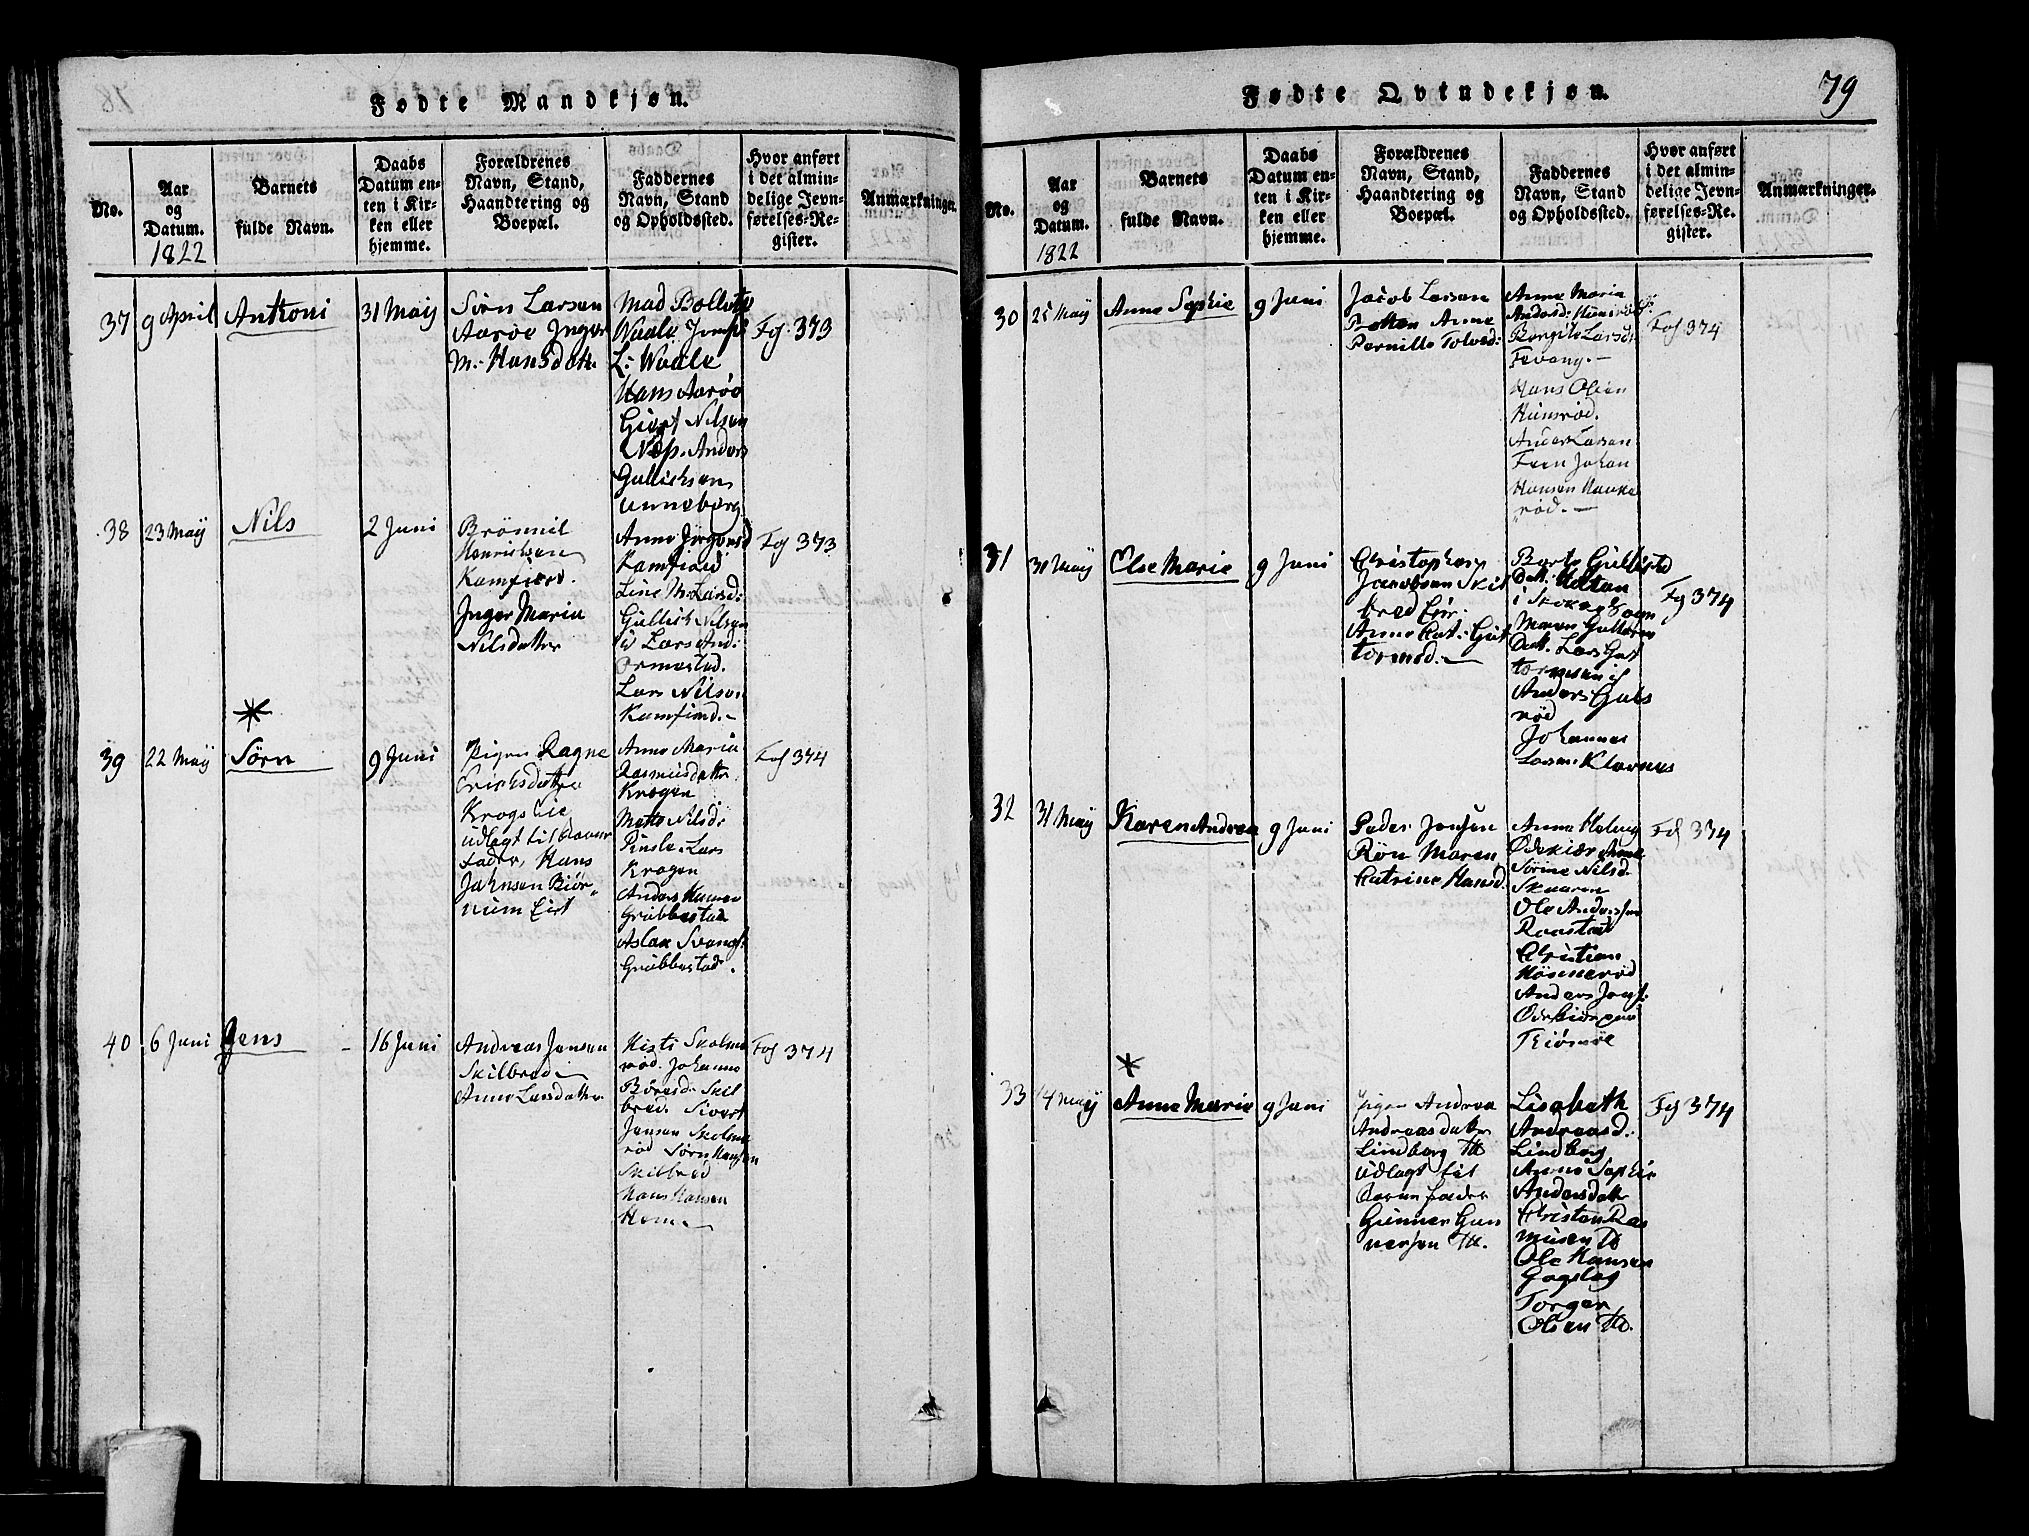 Fødte Mandkjøn.
No.
Aar
og
Datum.
1822
Barnets
fulde Navn.
Daabs
Datum en-
ten i Kir-
ken eller
hjemme.
Forældrenes
Navn, Stand,
Haandtering og
Boepæl.
Faddernes
Navn, Stand
og Opholdssted.
Hvor anført
i det almin-
delige Jevn-
førelses-Re-
gister.
Anmærkninger.
37
9 April
Anthoni
31 Maÿ
Sørn Larsen
Aarøe Inger
M. Hansdatt.
Mad Bollette
Waale Jens
L: Waale
Hans Aarøe
Giert Nilsen
Anders
Gullichsen
Unneberg
Fol 373
38
23 Maÿ
Nils
2 Juni
Brønnil
Henrichsen
Kamfiord.
Inger Maria
Nilsdatter
Anne Jørgensd
Kamfiord
Line M. Larsd:
Gullich Nilsen
Lars And:
Ormestad.
Lars Nilsen
Kamfiord.-
Fol 373
*
39
22 Maÿ
Sørn
9 Juni
Pigen Ragne
Erichsdatter
Krogs Eie
udlagt til Barne
fader, Hans
Johnsen Biør-
num Eie
Anne Maria
Rasmusdatter
Krogen
Mette Nilsd:
Lars
Krogen
Anders Hansen
Grubbestad
Aslak Svends:
Grubbestad.
Fol 374
40
6 Juni
Jens
16 Juni
Andreas Jensen
Skilbred
Anne Larsdatter
Kisti Skolme
rød. Johanne
Børresd. Skil
bred. Sivert
Jensen Skolme
rød Sørn Hansen
Skilbred
Hans Hansen
Hem.
Fol 374
Fødte Qvindekjøn.
79
No.
Aar
og
Datum.
1822
Barnets
fulde Navn.
Daabs
Datum en-
ten i Kir-
ken eller
hjemme.
Forældrenes
Navn, Stand,
Haandtering og
Boepæl.
Faddernes
Navn, Stand
og Opholdssted.
Hvor anført
i det almin-
delige Jevn-
førelses-Re-
gister.
Anmærkninger.
30
25 Maÿ
Anne Sophie
9 Juni
Jacob Larsen
Anne
Pernille Tolvsd:
Anne Maria
Andersd: Hunsrød
Borgite Larsd:
Fevang.-
Hans Olsen
Hunsrød.
Anders Larsen
Johan
Hansen Hauke
rød.-
Fol 374
31
31 Maÿ
Else Marie
9 Juni
Christopher
Jacobsen Skil
bred Eie:
Anne Cat: Gut
tormsd.
Berte Gullichs
Datt.
i Skoke
Maren Guttorms
Datt. Lars Gut
tormsen
Anders Guls
rød
Johannes
Larsen Klavnes
Fol 374
32
31 Maÿ
Karen Andrea
9 Juni
Peder Jensen
Røn Maren
Catrine Hansd.
Anne Helvig
Ødekiær Anne
Sørine Nilsd.
Skaaren
Ole Andersen
Raastad
Christian
Hønnerød
Anders Jens:
Ødekiær paa
Tiømøe
Fol 374
*
33
14 Maÿ
Anne Marie
9 Juni
Pigen Andrea
Andreasdatter
Lindborg
udlagt til
Barne fader
Gunner Gun
nersen
Lisabeth
Andreasd:
Lindborg
Anne Sophie
Andersdatt
Christen Ras
musen
Ole Hansen
Gogslog
Torger
Olsen
Fol 374